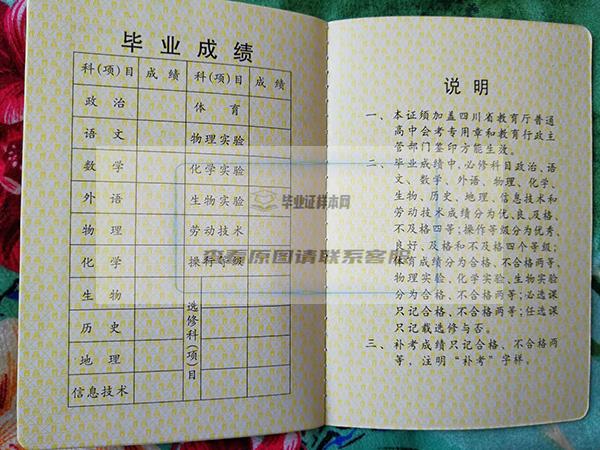 毕业成绩
科(项)目 成绩 科(项)目 成绩
政治 体育
语文 物理实验
数学 化学实验
外语 生物实验
物理 劳动技术
化学 操行等级
生物 选修科(项)目
历史
地理
信息技术
毕业证样本网
查看原图请联系客服
说明
一、本证须加盖四川省教育厅普通
高中会考专用章和教育行政主
管部门签印方能生效。
二、毕业成绩中,必修科目政治、语
文、数学、外语、物理、化学、
生物、历史、地理、信息技术和
劳动技术成绩分为优、良、及格、
不及格四等;操作等级分为优秀、
良好、及格和不及格四个等级;
体育成绩分为合格、不合格两等,
物理实验、化学实验、生物实验
分为合格、不合格两等;必选课
只记合格、不合格两等;任选课
只记载选修与否。
三、补考成绩只记合格、不合格两
等,注明“补考”字样。